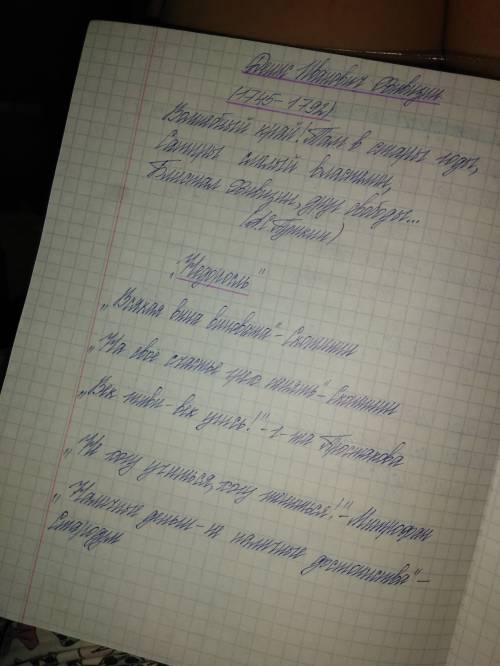 Денис Иванович Фонвизин
(1745-1792)
Волшебный край! Там в стары годы,
Сатиры смелый властелин,
Блистал Фонвизин, друг свободы...
(А.С. Пушкин)
"Недоросль"
„Всякая вина виновата" - Скотинин
„На своё счастье грех пенять" - Скотинин
„Век живи - век учись!" - г-жа Простакова
„Не хочу учиться, хочу жениться!" - Митрофан
„Наличные деньги - не наличные достоинства" -
Стародум